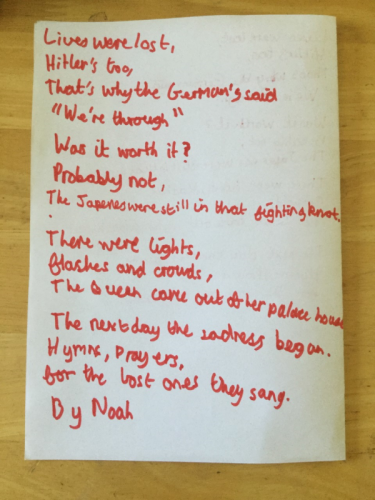 Lives were lost,
Hitler's too,
That's why the German's said
"We're through"
Was it worth it?
Probably not,
The Japenes were still in that fighting knot.
There were lights,
flashes and crowds,
The Queen came out of her palace house
The next day the sadness began.
Hymns, prayers,
for the lost ones they sang.
By Noah